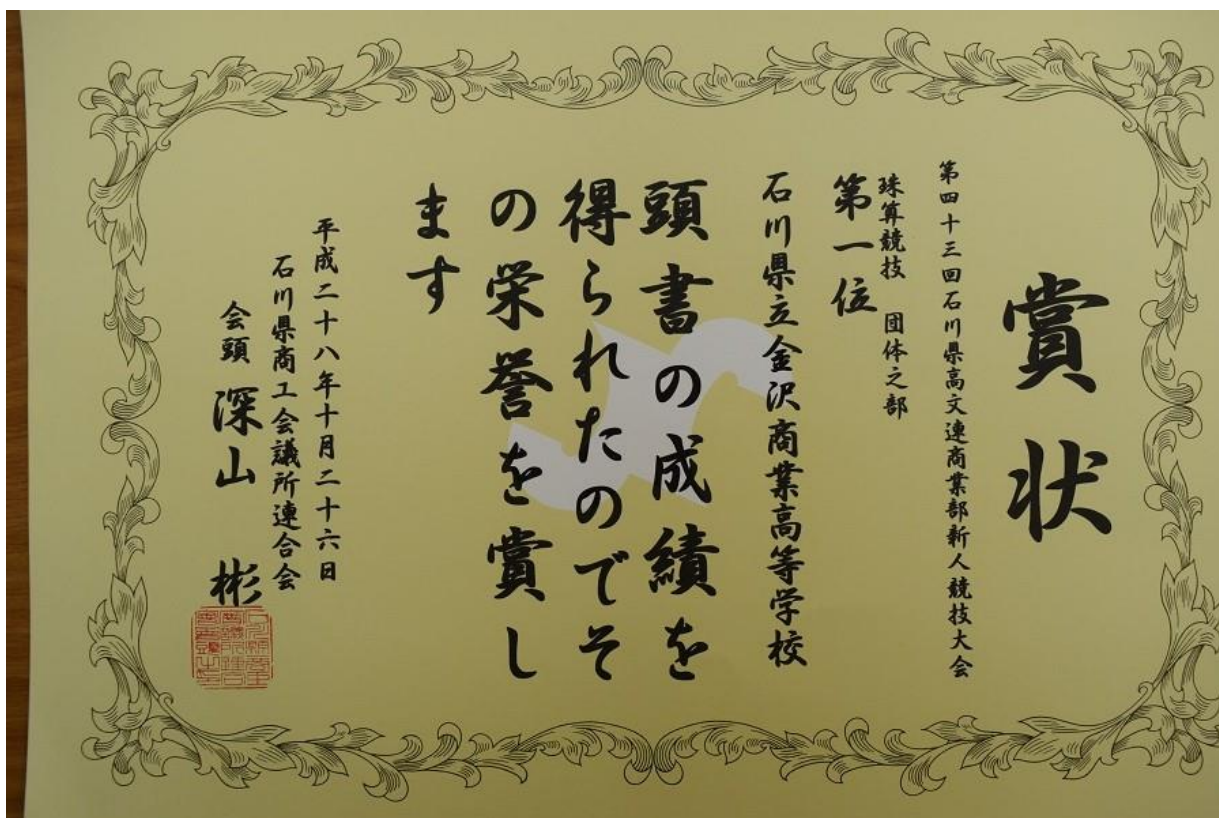 賞状
第四十三回石川県高文連商業部新人競技大会
珠算競技 団体之部
第一位
石川県立金沢商業高等学校
頭書の成績を
得られたのでそ
の栄誉を賞し
ます
平成二十八年十月二十六日
石川県商工会議所連合会
会頭 深山 彬